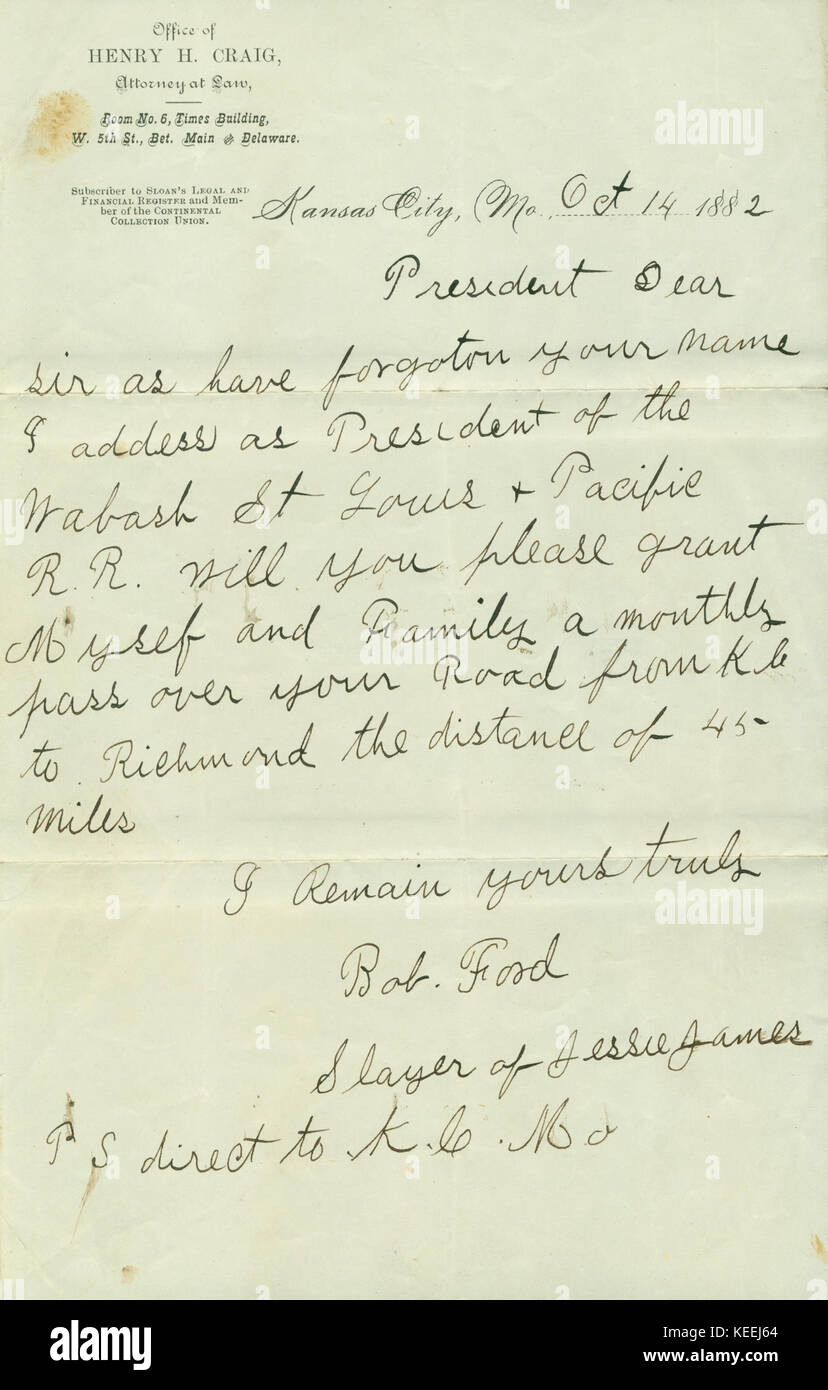 Office of
HENRY H. CRAIG,
Attorney at Law,
Room No. 6, Times Building,
W. 5th St., Bet. Main & Delaware.
Subscriber to SLOAN'S LEGAL AND
FINANCIAL REGISTER and Mem-
ber of the CONTINENTAL
COLLECTION UNION.
Kansas City, Mo. Oct 14 1882
President Dear
sir as have forgoton your name
I addess as President of the
Wabash St Louis + Pacific
R. R. will you please grant
Mysef and Family a monthly
pass over your Road from K C
to Richmond the distance of 45
miles
I Remain yours truly
Bob. Ford
Slayer of Jessie James
P S direct to K. C. Mo
alamy
alamy
alamy
alamy
a
a
a
a
a
alamy
Image ID: KEEJ64
www.alamy.com